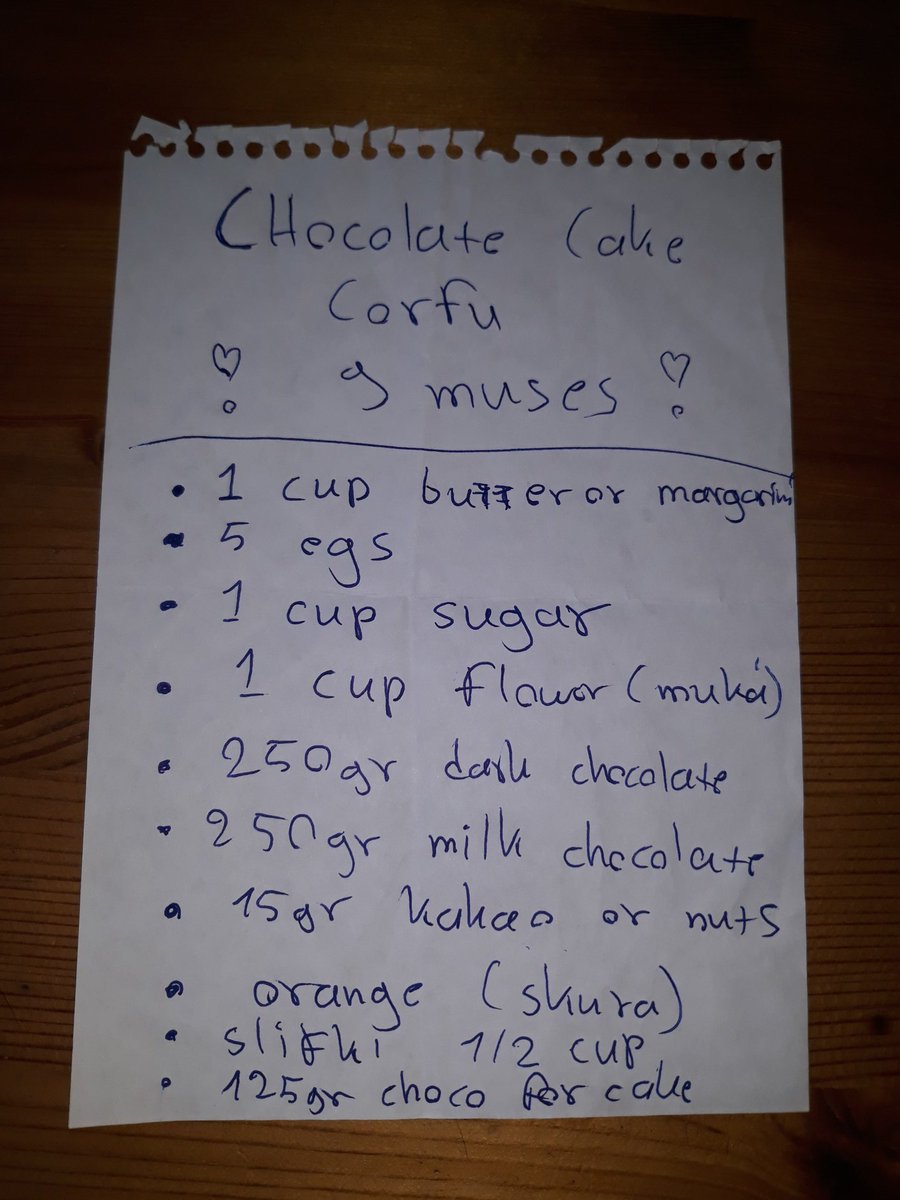 CHocolate Cake
Corfu
9 muses
• 1 cup butter or margarini
• 5 egs
• 1 cup sugar
• 1 cup flowor (muká)
• 250gr dark chocolate
• 250gr milk chocolate
• 15gr kakao or nuts
• orange (skura)
• slifki 1/2 cup
• 125gr choco for cake